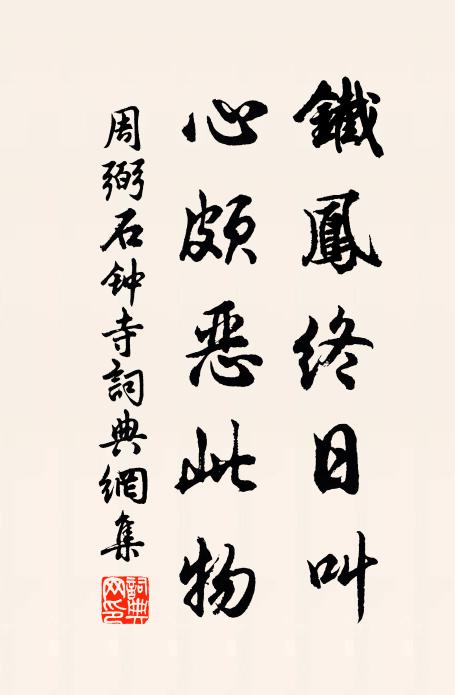 鐵鳳終日叫
心頗惡此物
周弼石钟寺詞典網集
詞典网印